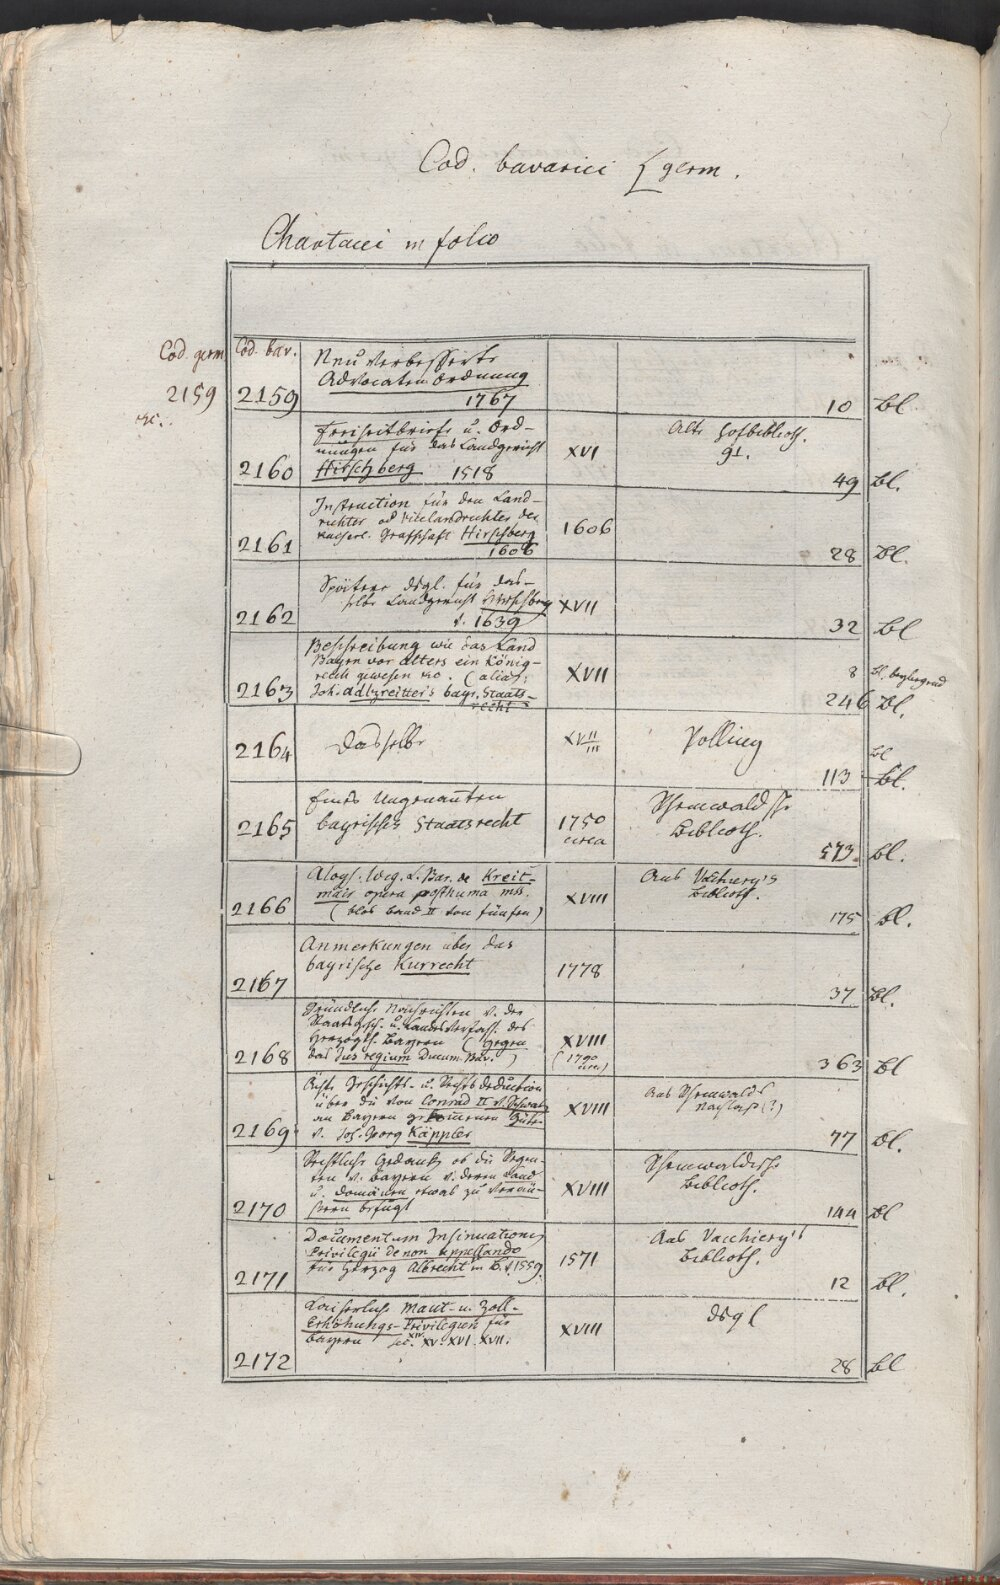 Cod. bavarici [germ.
Chartacei in folio
Cod. germ. Cod. bav.
2159 etc. 2159 Neu verbesserte
Advocaten Ordnung
1767 10 Bl
2160 Freiheitbriefe u. Ord-
nungen für das Landgericht
Hirschberg 1518 XVI Alte Hofbiblioth.
91. 49 Bl.
2161 Instruction für den Land-
richter od Vicelandrichter der
kaiserl. Grafschaft Hirschberg
1606 1606 28 Bl.
2162 Spätere dsgl. für das-
selbe Landgericht Hirschberg
v. 1639 XVII 32 Bl
2163 Beschreibung wie das Land
Bayrn vor alters ein König-
reich gewesen (alias:
Joh. Adlzreitter's bayr. Staats-
recht XVII 8 Bl.
246 Bl.
2164 Dasselbe XVII/III Polling Bl
113 Bl.
2165 Eines Ungenannten
bayrisches Staatsrecht 1750
circa
Biblioth. 573. Bl.
2166 Aloys. Wig. L. Bar. de Kreit-
mair opera posthuma mss.
(blos Band II von fünfen) XVIII Aus Vacchiery's
Biblioth. 175 Bl.
2167 Anmerkungen über das
bayrische Kurrecht 1778 37 Bl.
2168 Gründliche Nachrichten v. der
Staatsgesch. u. Landesverfass. des
Herzogth. Bayern (gegen
das Jus regium Ducum Bav.) XVIII
(1790
circ.) 363 Bl
2169 Ächte Geschichts- u. Rechtsdeduction
über die von Conrad II v. Schwab.
an Bayern gekommenen Güter
v. Joh. Georg Käppler XVIII Aus
Nachlass (?) 77 Bl.
2170 Rechtliche Gedanken ob die Regen-
ten v. Bayern v. deren Land
u. Domänen etwas zu veräu-
ssern befugt XVIII
Biblioth. 144 Bl
2171 Documentum Insinuationis
Privilegii de non appellando
für Herzog Albrecht in B. v. 1559. 1571 Aus Vacchiery's
Biblioth. 12 Bl.
2172 Kaiserliche Maut- u. Zoll-
Erhöhungs-Privilegien für
Bayern sec. XIV. XV. XVI. XVII. XVIII dsgl 28 Bl